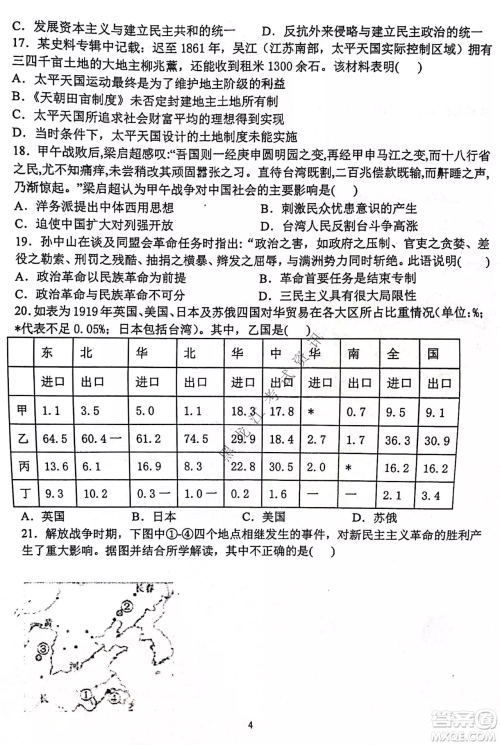 C. 发展资本主义与建立民主共和的统一 D. 反抗外来侵略与建立民主政治的统一
17. 某史料专辑中记载：迟至 1861 年，吴江（江苏南部，太平天国实际控制区域）拥有
三四千亩土地的大地主柳兆薰，还能收到租米 1300 余石。该材料表明( )
A. 太平天国实际是为了维护地主阶级的利益
B. 《天朝田亩制度》未否定封建的土地制度
C. 太平天国所追求社会财富平均的理想得到实现
D. 实际上，太平天国设计的土地制度尚未能实行
18. 甲午战败后,梁启超感叹:“吾国则一经庚申圆明园之变,再经甲申马江之变,而十八行省
之民,犹不知痛痒,未尝稍改其顽固嚣张之习。直待台湾既割,二百兆偿款既输,而鼾睡之声,
乃渐惊起。”梁启超认为甲午战争对中国社会的主要影响是( )
A. 洋务派提出中体西用思想 B. 刺激民众忧患意识的产生
C. 迫使中国扩大对列强开放 D. 台湾人民反割台斗争高涨
19. 孙中山在谈及同盟会革命任务时指出:“政治之害,如政府之压制、官吏之贪婪、差
役之勒索、刑罚之残酷、抽捐之横暴、辫发之屈辱,与满洲势力同时消灭。此语说明( )
A. 政治革命以民族革命为前提 B. 种族革命与政治革命并行
C. 民族革命和政治革命对立 D. 民族革命具有局限性
20. 如表为 1919 年英国、美国、日本及苏俄四国对华贸易在各大区所占比重情况(单位:%;
*代表不足 0.05%;日本包括台湾)。其中，乙国是( )
东 北 华 北 华 中 华 南 全 国
进口 出口 进口 出口 进口 出口 进口 出口 进口 出口
甲 1.1 3.5 5.0 1.1 18.3 17.8 * 0.7 9.5 9.1
乙 64.5 60.4 一 61.1 74.5 29.9 18.4 2.7 1.7 36.3 30.9
丙 13.6 6.1 16.2 8.9 24.8 20.9 2.4 * 16.4 16.0
丁 9.3 10.2 一 一 0.2 2.2 一 一 2.0 3.4
A. 英国 B. 日本 C. 美国 D. 苏俄
21. 解放战争时期，下图中①-④四个地点相继发生的事件，对新民主主义革命的胜利产
生了重大影响。据图并结合所学解读，可以得到的是( )
长春
②
黄
③
河
长
①
④
黑龙江考试资讯
答案圈
MXQE.COM
4